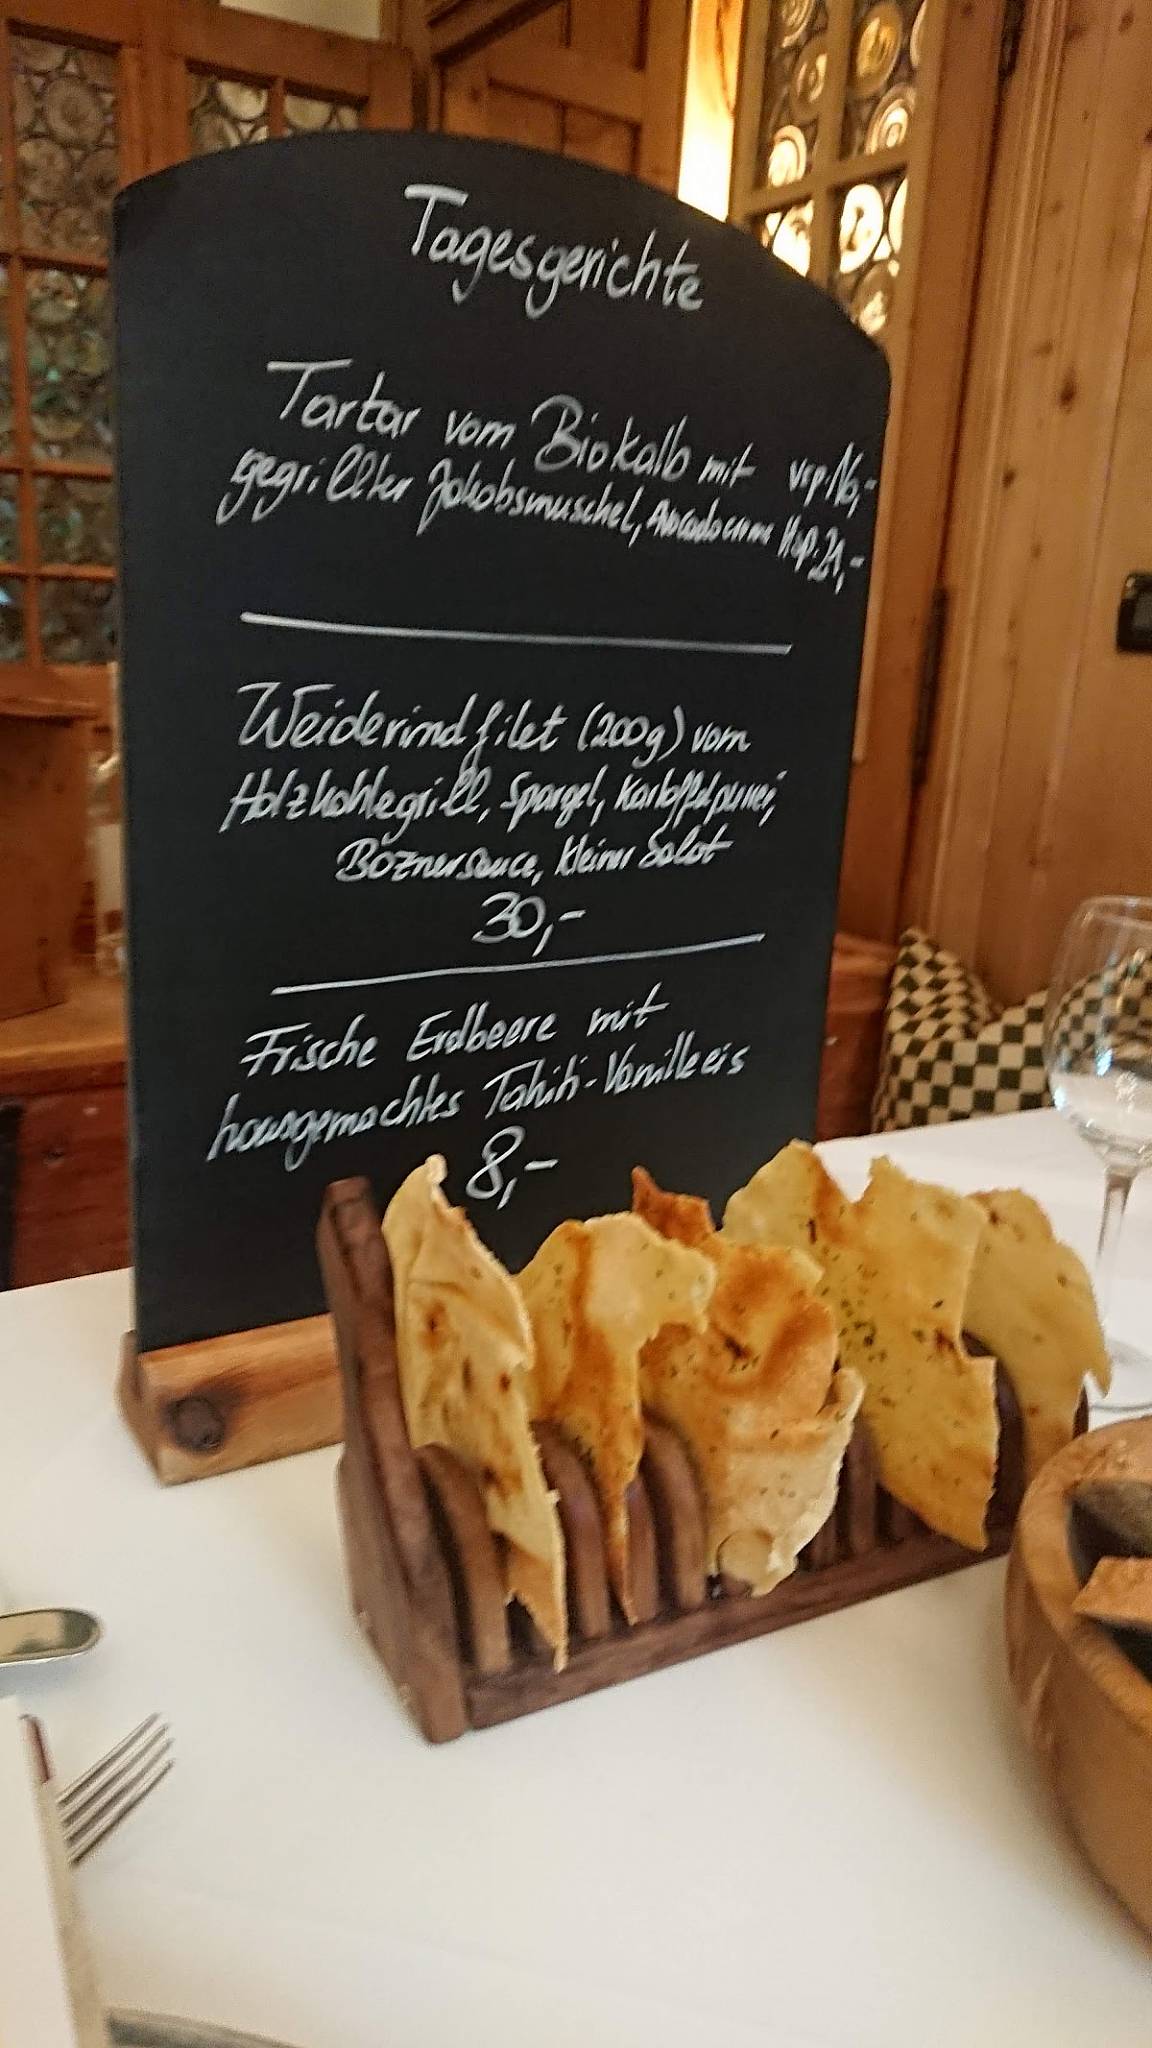 Tagesgerichte
Tartar vom Biokalb mit vsp. 16,-
gegrillter Jakobsmuschel, Avocadocreme Hsp. 21,-
Weiderindfilet (200g) vom
Holzkohlegrill, Spargel, Kartoffelpürree,
Boznersauce, kleiner Salat
30,-
Frische Erdbeere mit
hausgemachtes Tahiti-Vanilleeis
8,-